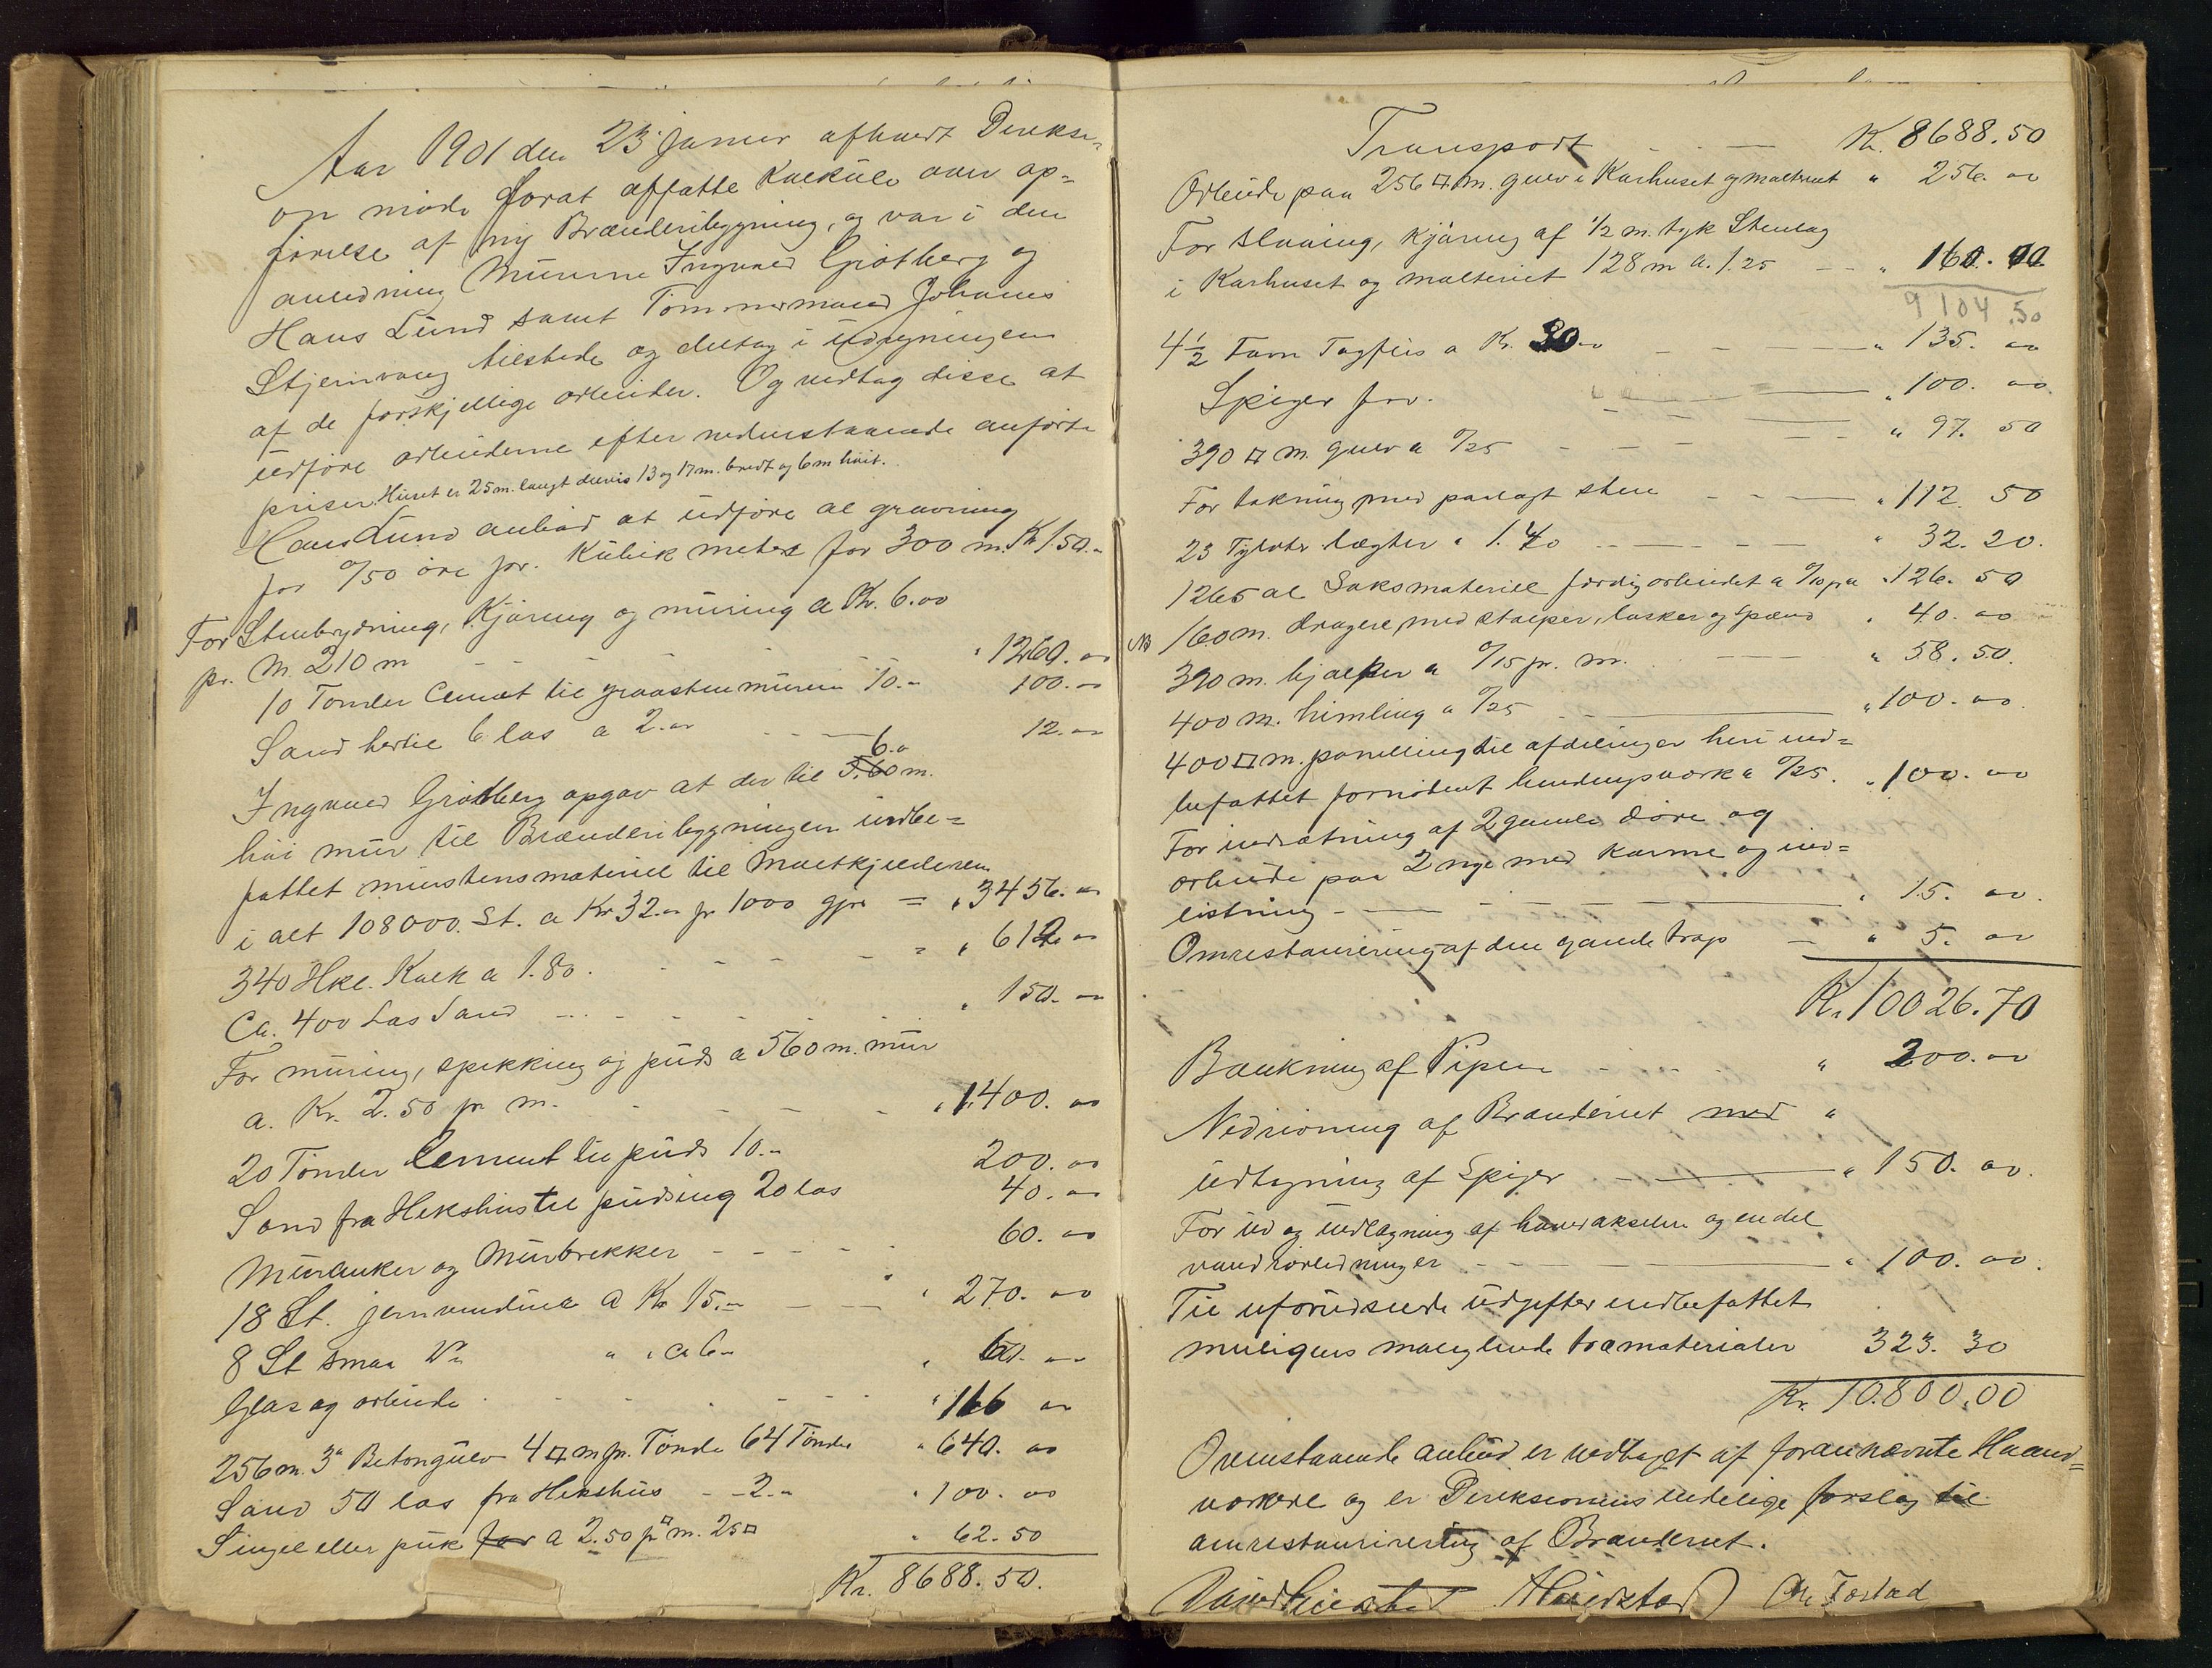 Aar 1901 den 23 januar afholdt Direksi-
on møde forat affatte Kalkule over op-
førelse af ny Brænderibygning, og var i den
anledning Murerne Ingvald Grøtberg og
Hans Lund samt Tømmermand Johannes
Stjernvang tilstede og deltog i udregningen
af de forskjellige arbeider. Og vedtog disse at
udføre arbeiderne efter nedenstaaende anførte
priser. Huset er 25 m. langt delvis 13 og 17 m. bredt og 6 m høit.
Hans Lund anbød at udføre al gravning
for 0/50 øre pr. Kubik meter for 300 m. Kr 150.-
For Stenbrydning, Kjøring og muring a Kr. 6.00
pr. M. 210 m - - - " 1260. 00
10 Tønder Cement til graastensmuren 10.- 100.00
Sand hertil 6 las a 2.00 - - - 12.00
6.0
Ingvald Grøtberg opgav at der til 3.60 m.
høi mur til Brænderibygningen indbe=
fattet murstensmateriel til Maltkjelderen
i alt 108000. St. a Kr 32.00 pr 1000 gjør = " 3456.00
340 Hkl. Kalk a 1.80. - - - = " 612.00
Ca. 400 las Sand - - - " 150.00
For muring, spekking og puds a 560 m. mur
a. Kr. 2.50 pr m. - - - " 1400.00
20 Tønder Cement til puds 10.- 200.00
Sand fra Hekshus til pudsing 20 las 40.00
Muranker og Murbrekker - - - 60.00
18 St. jernvinduer a Kr 15.- - - " 270.00
8 St smaa Do " " a 6- " 60.00
Glas og arbeide - - - " 166 00
256 m. 3" Betongulv 4 □ m pr. Tønde 64 Tønder " 640.00
Sand 50 las fra Hekshus - - 2.- " 100.00
Singel eller puk for a 2.50 pr □ m. 25 □ " 62.50
Kr. 8688.50.
Transport - - - Kr. 8688.50
Arbeide paa 256 □ m. gulv i Karhuset og malteriet " 256.00
For slaaing, kjøring af 1/2 m. tyk Stenlag
i Karhuset og malteriet 128 m a. 1.25 - - " 160.00
9104.50
4 1/2 Favn Tagflis a Kr. 30.00 - - - " 135.00
Spiger for. - - - " 100.00
390 □ m. gulv a 0/25 - - - " 97.50
For tækning med paalagt sten - - - " 112 50
23 Tylvter lægter a 1.40 - - - " 32.20.
1265 al Saksmateriel færdig arbeidet a 0/10 pr a " 126.50
NB 160 m. dragere, med stolper, lasker og spænd " 40.00
390 m. bjælker a 0/15 pr. m. - - " 58.50.
400 m. himling a 0/25 - - - " 100.00.
400 □ m. panelling til afdelinger heri ind=
befattet fornødent bindingsværk a 0/25. " 100.00
For indsætning af 2 gamle døre og
arbeide paa 2 nye med karme og ind=
listning - - - " 15.00.
Omrestaurering af den gamle trap - " 5.00
Kr. 10026.70
Bankning af Pipen - - " 200.00
Nedrivning af Brænderiet med "
udtagning af Spiger - - - " 150.00.
For ud og indlægning af hovedakselen og en del
vandrørledninger - - - " 100.00.
Til uforudseede udgifter indbefattet
muligens manglende træmaterialer 323.30
Kr. 10.800.00
Ovenstaaende anbud er vedtaget af forannævnte Haand=
værkere og er Direksionens endelige forslag til
omrestaurirering af Brænderiet.